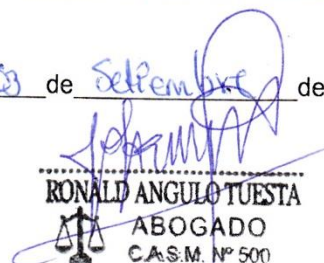 03 de Setiembre de
RONALD ANGULO TUESTA
ABOGADO
C.A.S.M. Nº 500